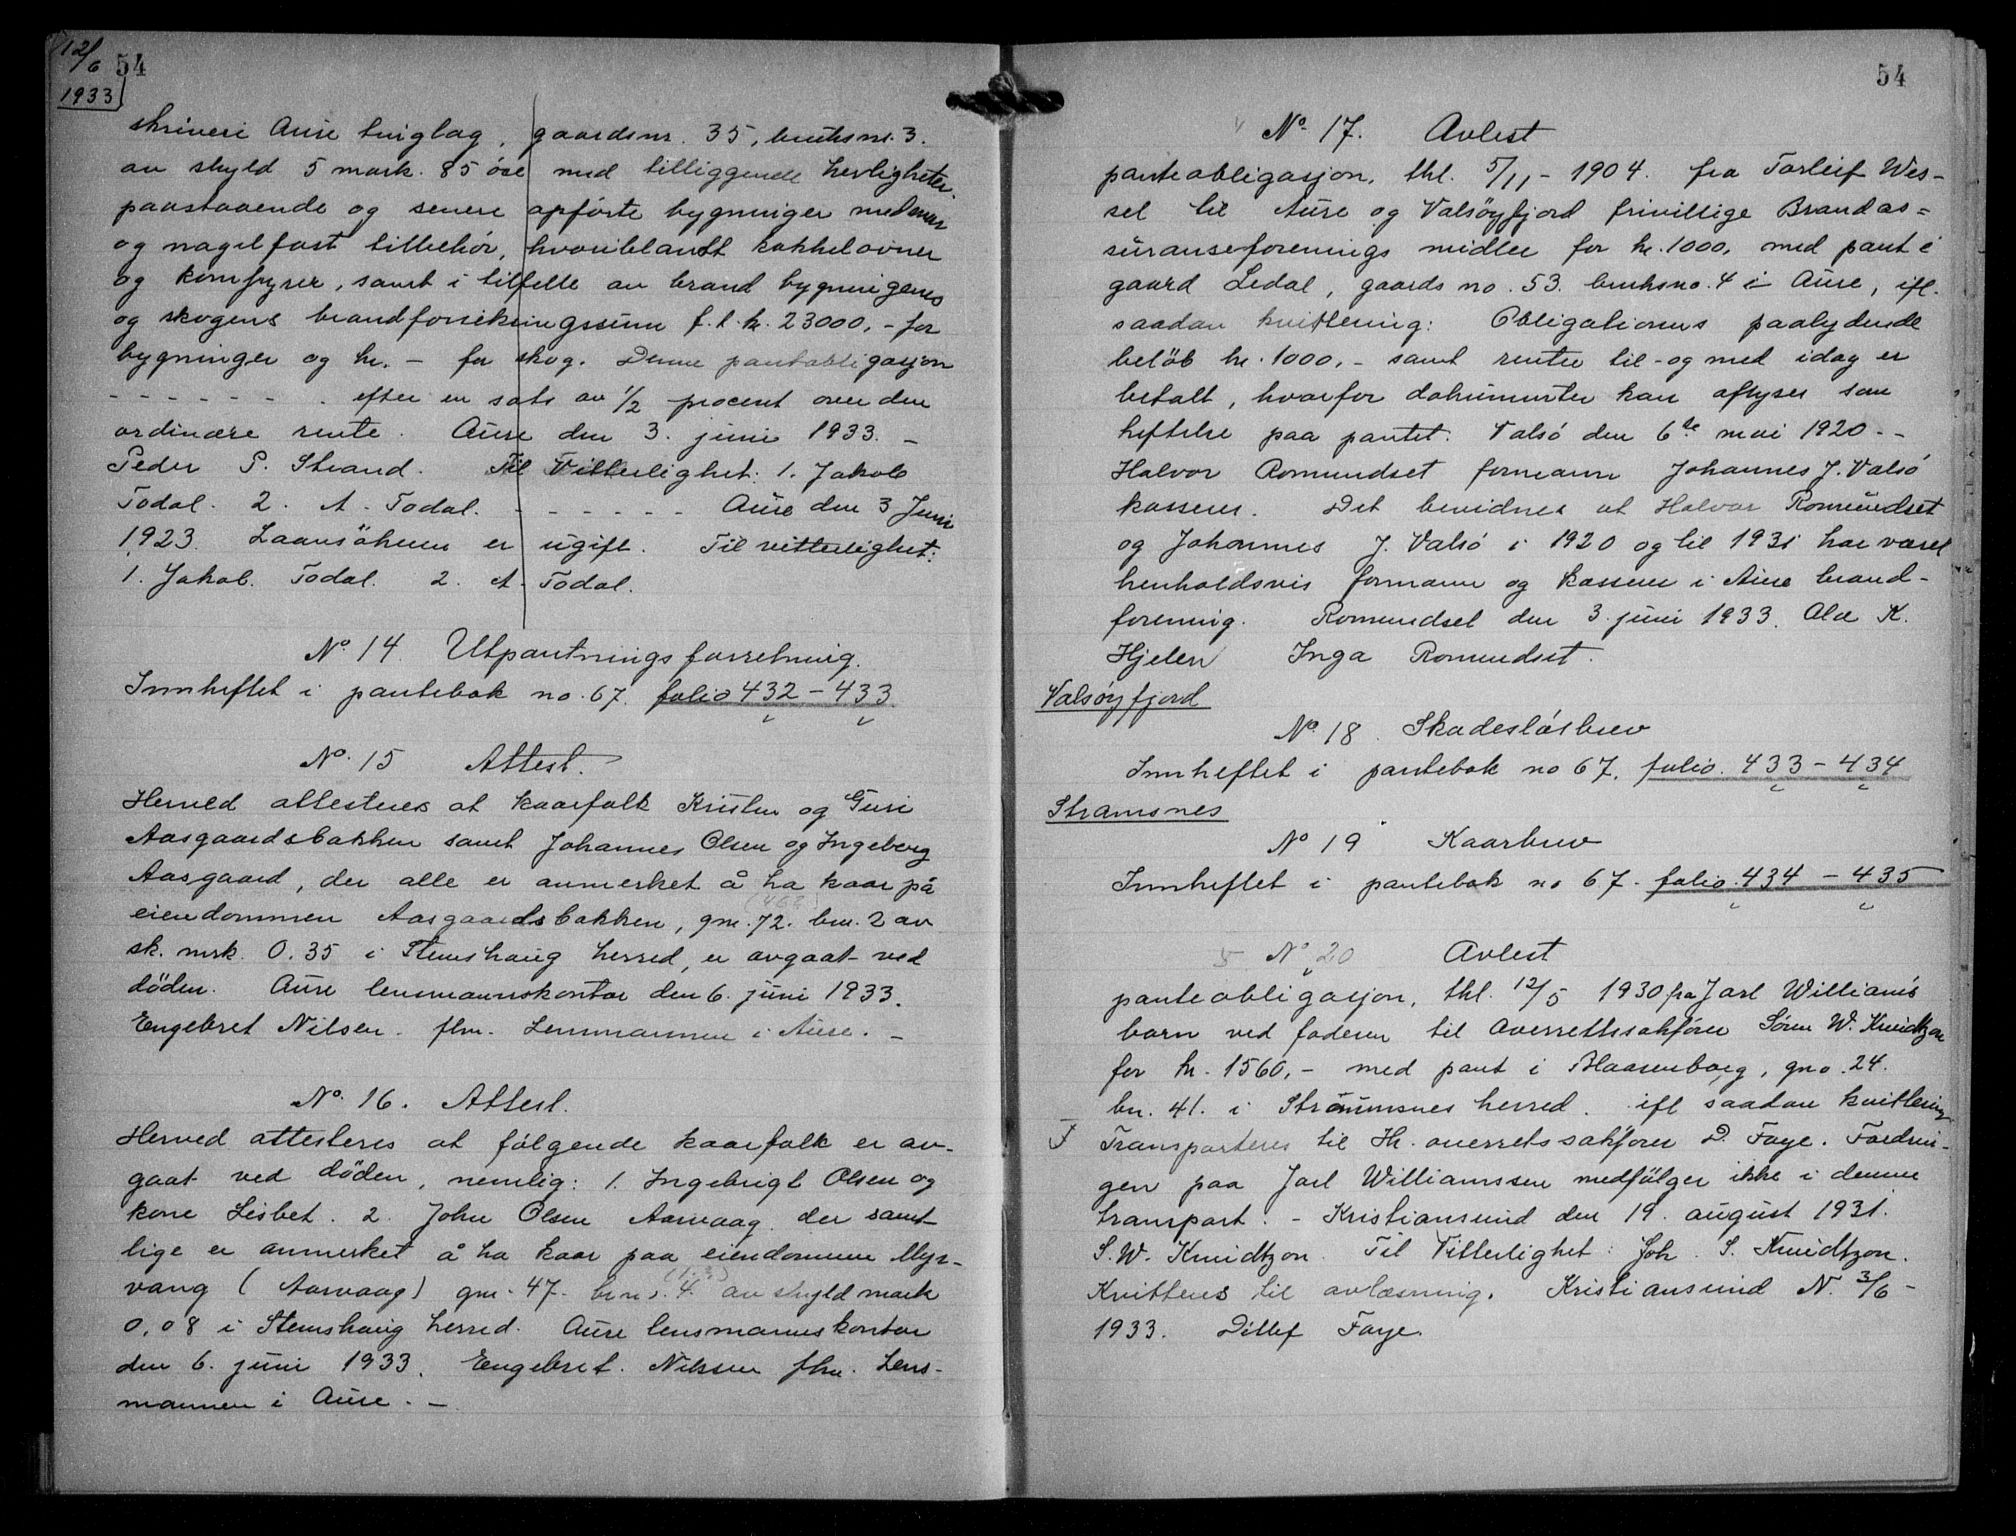 12/6
1933
54
skriveri Aure tinglag, gaardsnr. 35, bruksnr. 3.
av skyld 5 mark 85 öre med tilliggende herligheter
paastaaende og senere opförte bygninger med mur
og nagelfast tilbehör, hvoriblandt kakkelovner
og komfyrer, samt i tilfelle av brand bygningenes
og skogens brandforsikringssum f. t. kr. 23000,- for
bygninger og kr. - for skog. Denne pantobligasjon
- - - - - - - . efter en sats av 1/2 procent over den
ordinære rente. Aure den 3. juni 1933. -
Peder P. Strand. Til Vitterlighet: 1. Jakob
Todal. 2. A. Todal. - - - - - - Aure den 3 Juni
1923. Laansökeren er ugift. Til vitterlighet:
1. Jakob. Todal. 2. A. Todal.
No. 14. Utpantningsforretning.
Innheftet i pantebok no. 67. folio 432 - 433
No. 15 Attest.
Herved attesteres at kaarfolk Kristen og Guri
Aasgaardsbakken samt Johannes Olsen og Ingeborg
Aasgaard, der alle er anmerket å ha kaar på
eiendommen Aasgaardsbakken, gnr. 72. bnr. 2 av
sk. mrk. 0.35 i Stemshaug herred, er avgaat ved
döden. Aure lensmannskontor den 6. juni 1933.
Engebret Nilsen. fhv. Lensmannen i Aure. -
No. 16. Attest.
Herved attesteres at følgende kaarfolk er av-
gaat ved döden, nemlig: 1. Ingebrigt Olsen og
kone Lisbet. 2. John Olsen Aarvaag. der samt-
lige er anmerket å ha kaar paa eiendommen Myr-
vang (Aarvaag) gnr. 47. bnr. 4. av skyld mark
0,08 i Stemshaug herred. Aure lensmannskontor
den 6. juni 1933. Engebret. Nilsen fhv. Lens-
mannen i Aure. -
54
No. 17. Avlest
panteobligasjon, thl. 5/11 - 1904. fra Torleif Wes-
sel til Aure og Valsöyfjord frivillige Brandas-
suranseforenings midler for kr. 1000, med pant i
gaard Ledal, gaards no. 53. bruksno. 4 i Aure, ifl.
saadan kvittering: Obligationens paalydende
belöb kr. 1000,- samt renter til - og med idag er
betalt, hvorfor dokumentet kan aflyses som
heftelse paa pantet. Valsö den 6te mai 1920. -
Halvor Romundset formann Johannes J. Valsö
kasserer. Det bevidnes at Halvor Romundset
og Johannes J. Valsö i 1920 og til 1931 har været
henholdsvis formann og kasserer i Aure brand-
forening. Romundset den 3. juni 1933. Ola K.
Hjelen Inga Romundset.
Valsøyfjord
No. 18. Skadeslösbrev
Innheftet i pantebok no 67. folio. 433 - 434
Stramsnes
No 19 Kaarbrev
Innheftet i pantebok no 67. folio. 434 - 435
5 No 20 Avlest
panteobligasjon, thl. 12/5 1930 fra Jarl Williams
barn ved faderen til Overrettssakförer Sören W. Knudtzon
for kr. 1560,- med pant i Blaasenborg, gno. 24.
bn. 41. i Straumsnes herred. ifl saadan kvittering
Transporteres til Hr. overretssakfører D. Faye. Fordrin-
gen paa Jarl Williamssen medfølger ikke i denne
transport. - Kristiansund den 19. august 1931.
S. W. Knudtzon. Til Vitterlighet: Joh. S. Knudtzon.
Kvitteres til avlæsning. Kristiansund N. 3/6 -
1933. Ditlef Faye.